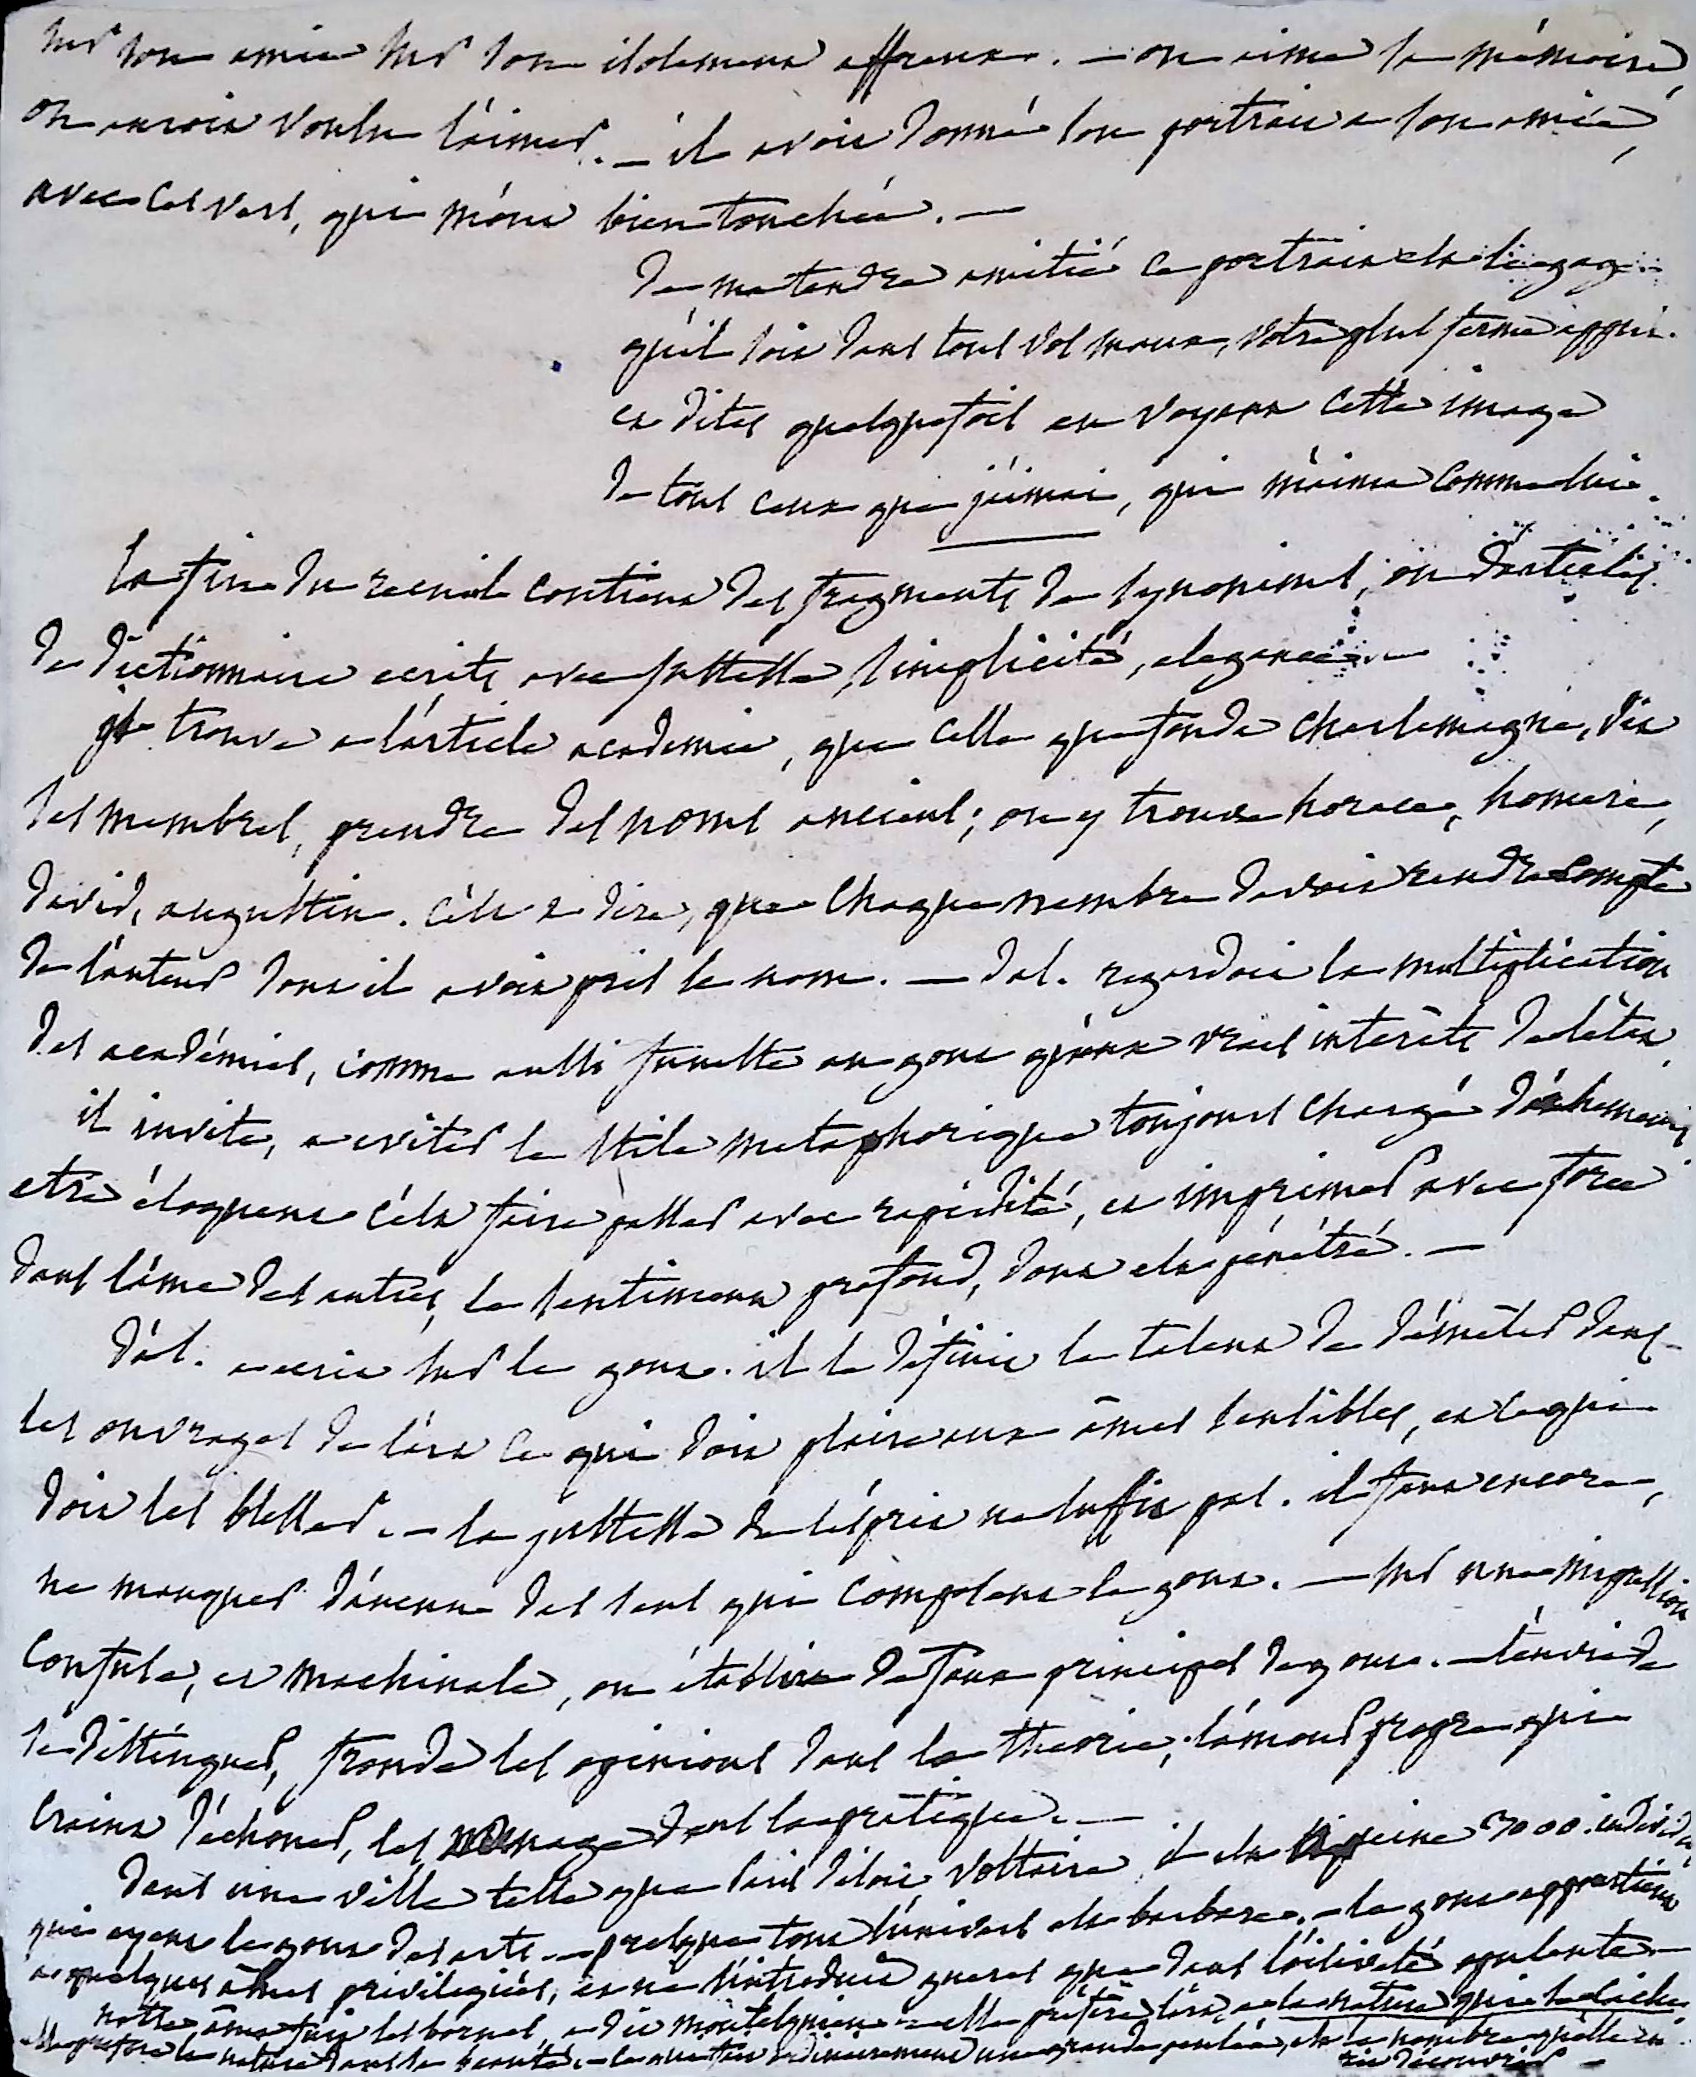 sur son amie sur son isolement affreux. — on aime sa mémoire,
on auroit voulu l'aimer. — il avoit donné son portrait a son amie,
avec ces vers, qui m'ont bien touchée. —
De ma tendre amitié ce portrait est le gage
qu'il soit dans tous vos maux, votre plus ferme appui.
et dites quelquefois en voyant cette image
de tous ceux que j'aimai, qui m'aima comme lui.
la fin du receuil contient des fragments de synonimes, ou d'articles
de dictionnaire ecrits avec justesse, simplicité, elegance —
je trouve a l'article academie, que celle que fonda charlemagne, vit
ses membres, prendre des noms anciens; on y trouve horace, homere,
david, augustin. c'est a dire, que chaque membre devoit rendre compte
de l'auteur dont il avoit pris le nom. — d'al. regardoit la multiplication
des académies, comme aussi funeste au gout qu'aux vrais interêts de l'état.
il invite, a eviter le stile metaphorique toujours chargé
etre éloquent c'est faire passer avec rapidité, et imprimer avec force
dans l'âme des autres, le sentiment profond, dont est pénétré. —
d'al. a ecrit sur le gout. il le définit le talent de démêler dans
les ouvrages de l'art ce qui doit plaire aux âmes sensibles, et ce qui
doit les blesser. — la justesse de l'esprit ne suffit pas. il faut encore,
ne manquer d'aucun des sens qui composent le gout. — sur une impression
confuse, et machinale, on établit de faux principes de gout. — l'envie de
se distinguer, fronde les opinions dans la theorie; l'amour propre qui
craint d'échouer, les menage dans la pratique. —
dans une ville telle que paris disoit voltaire il est a peine 3000. individus
qui ayent le gout des arts. — presque tout l'univers est barbare. — le gout appartient
a quelques âmes privilegiées, et ne s'introduit gueres que dans l'oisiveté opulente —
notre âme fuit les bornes, a dit montesquieu — elle prefere l'art, a la nature qui se cache
elle prefere la nature dans sa beauté. — ordinairement une grande pensée, est le nombre qu'elle en
fait découvrir —